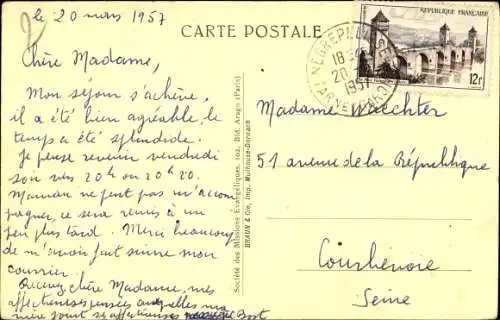 le 20 mars 1957
CARTE POSTALE
REPUBLIQUE FRANÇAISE
12f
18
20
1957
Chère Madame,
Mon séjour s'achève,
il a été bien agréable, le
temps a été splendide.
Je pense revenir vendredi
soir vers 20h ou 20h20.
Maman ne peut pas m'accom
pagner, ce sera remis à un
peu plus tard. Merci beaucoup
de m'avoir fait suivre mon
courrier.
Recevez chère Madame, mes
affectueuses pensées auxquelles ma
mère joint ses affectueuses
Société des Missions Evangéliques, 102 Bld. Arago (Paris)
BRAUN & Cie, Imp. Mulhouse-Dornach
Madame Waechter
51 avenue de la République
Courbevoie
Seine